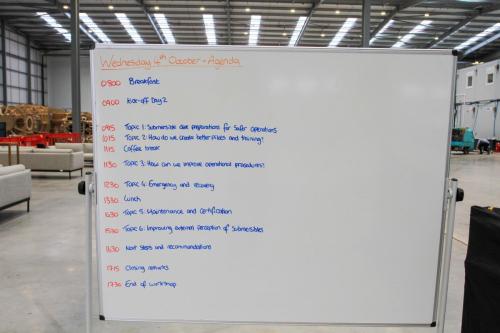 Wednesday 4th October - Agenda
0800 Breakfast
0900 Kick-off Day 2
0915 Topic 1: Submersible dive preparations for safer operations
1015 Topic 2: How do we create better pilots and training?
1115 Coffee break
1130 Topic 3: How can we improve operational procedures?
1230 Topic 4: Emergency and recovery
1330 Lunch
1430 Topic 5: Maintenance and certification
1530 Topic 6: Improving external perception of submersibles
1630 Next steps and recommendations
1715 Closing remarks
1730 End of workshop